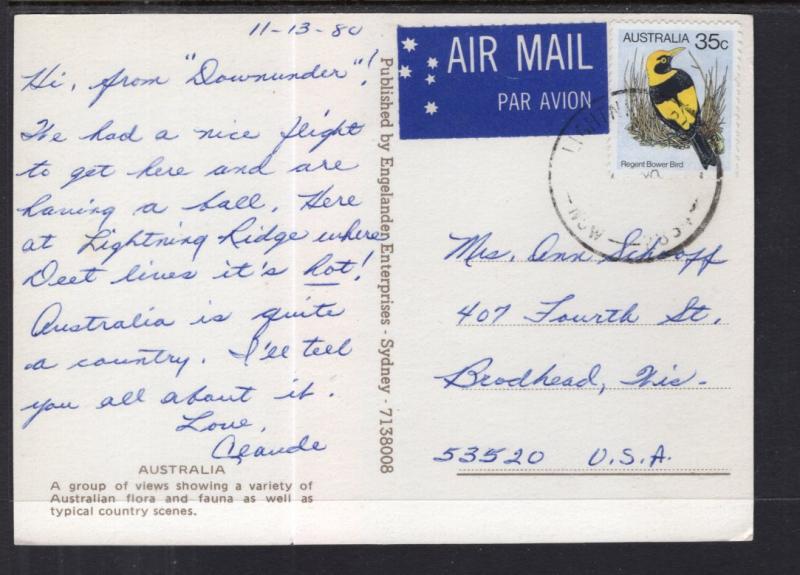 11-13-80
Hi, from "Downunder"!
We had a nice flight
to get here and are
having a ball. Here
at Lightning Ridge where
Deet lives it's hot!
Australia is quite
a country. I'll tell
you all about it.
Love,
Claude
AUSTRALIA
A group of views showing a variety of
Australian flora and fauna as well as
typical country scenes.
Published by Engelanden Enterprises - Sydney - 7138008
AIR MAIL
PAR AVION
AUSTRALIA 35c
Regent Bower Bird
Mrs. Ann Schooff
407 Fourth St.
Brodhead, Wis.
53520 U.S.A.